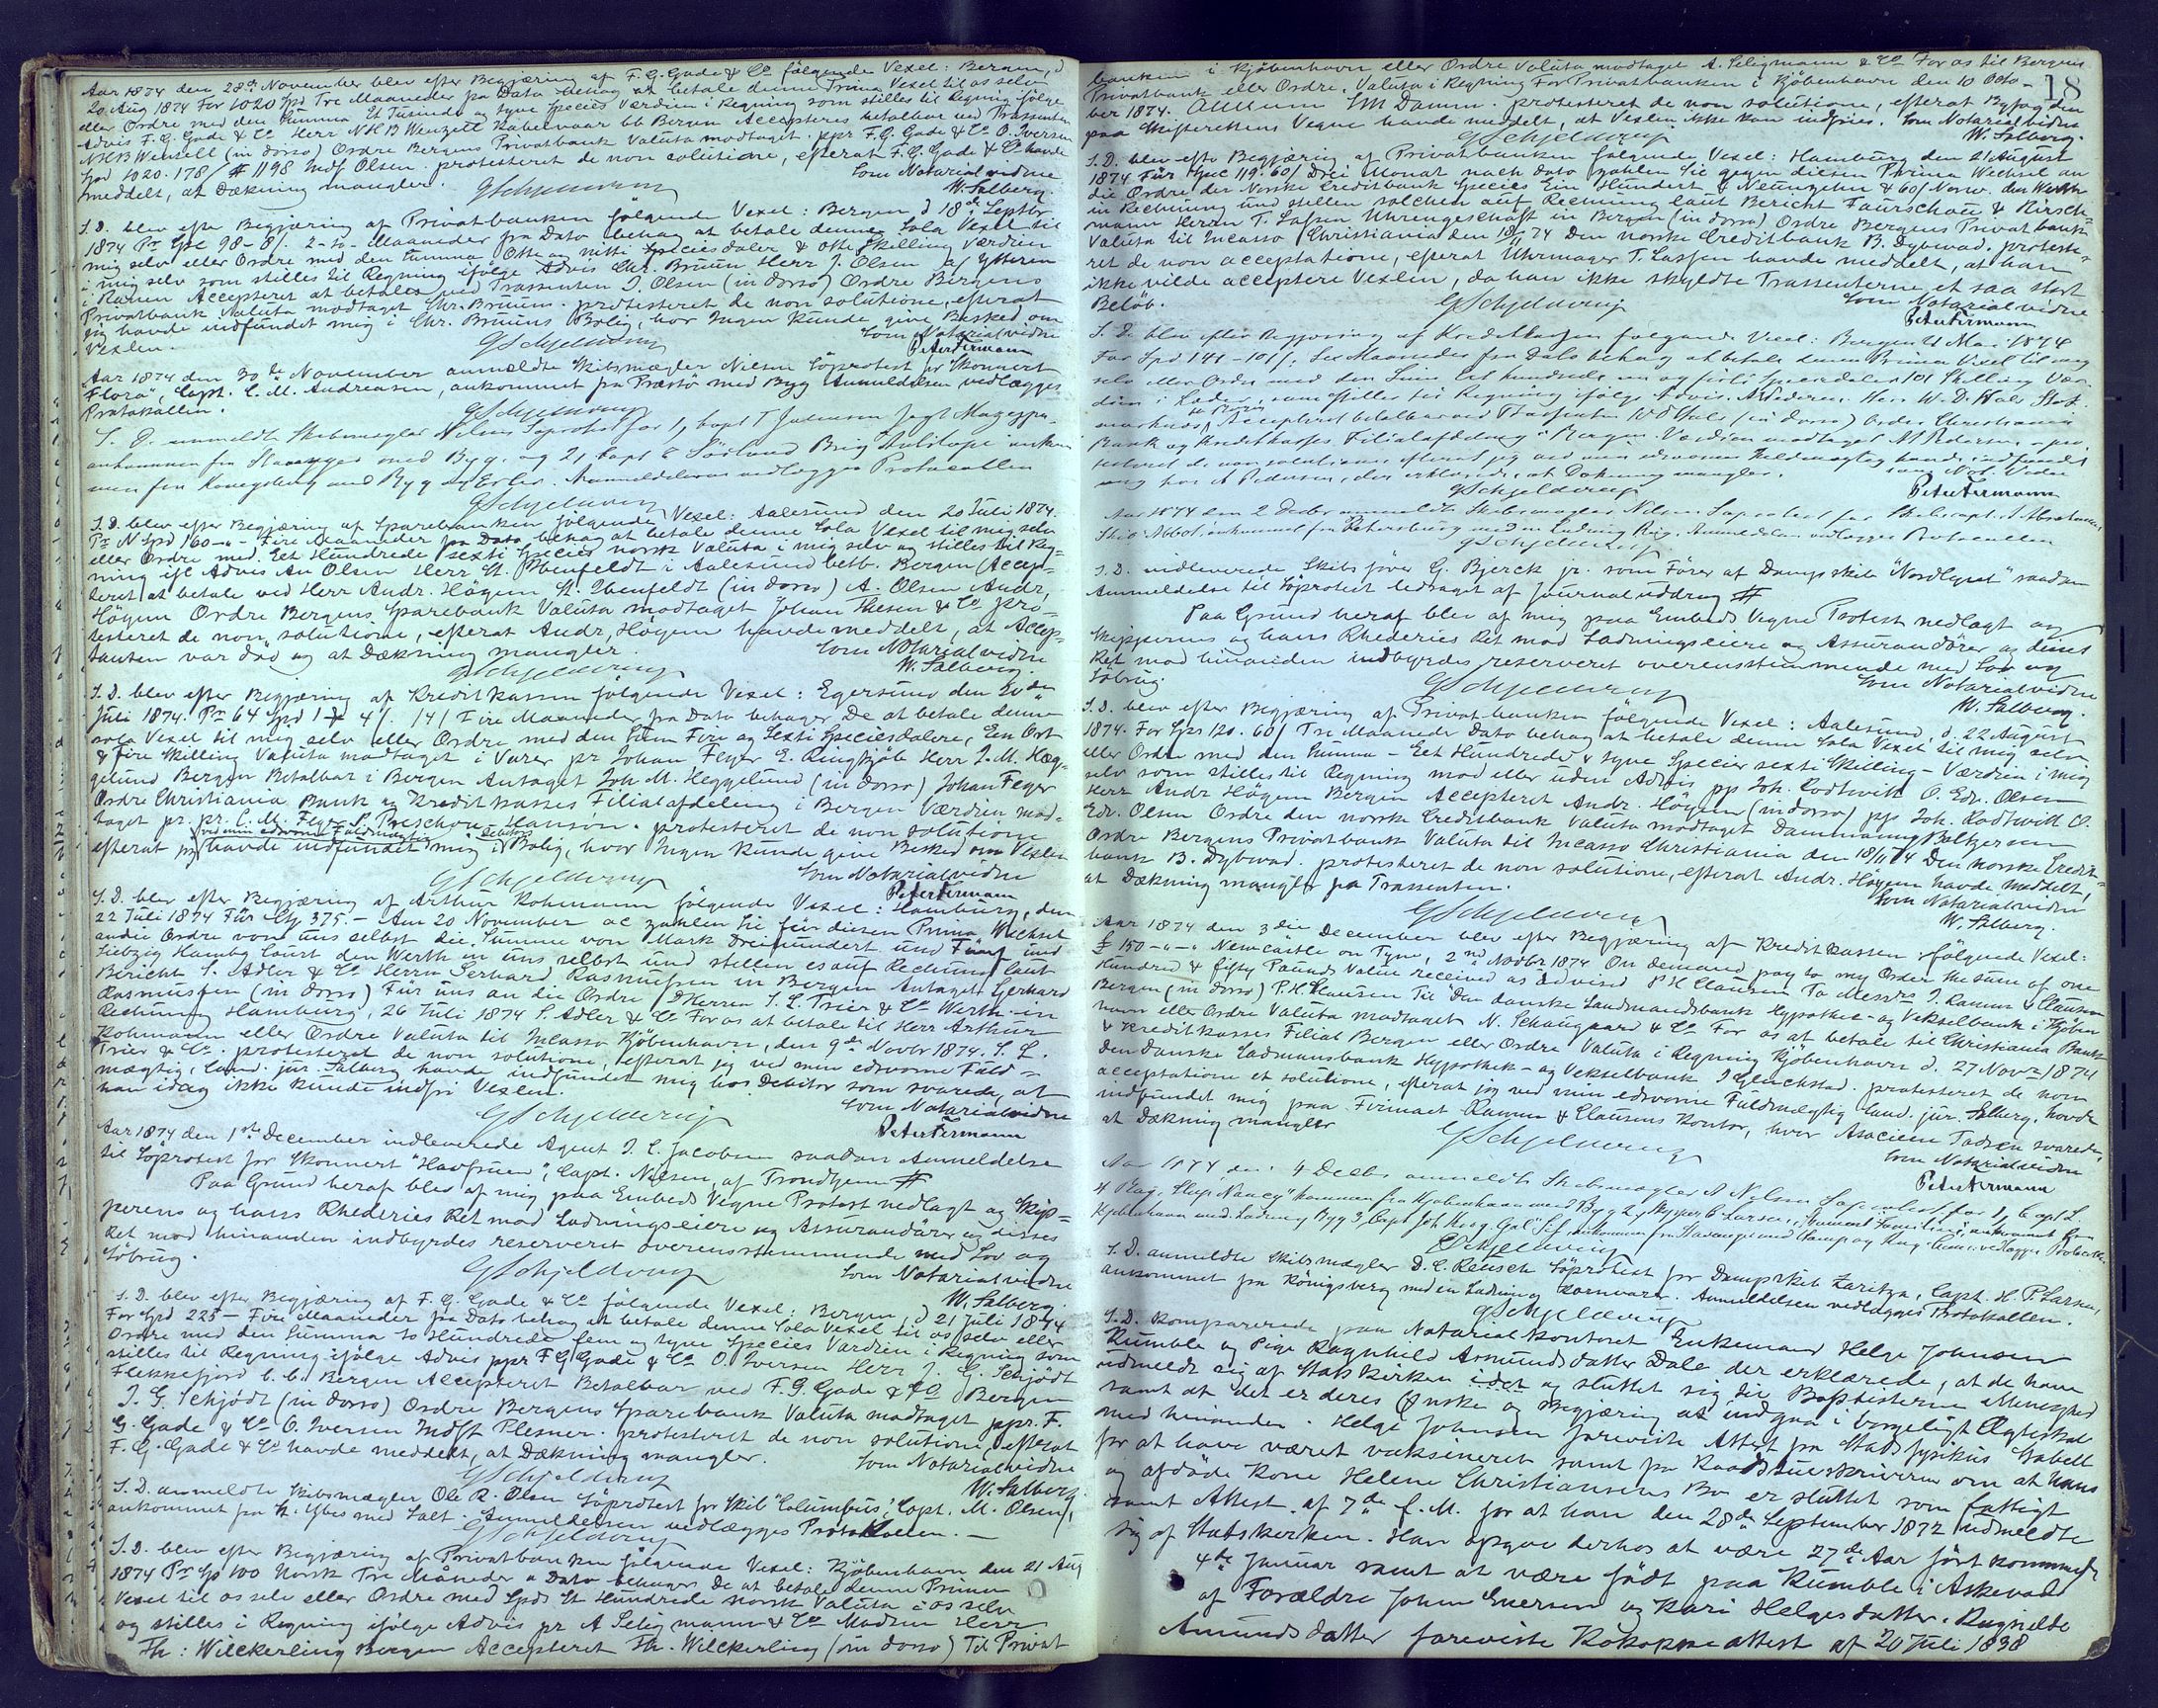 Aar 1874 den 28de November blev efter Begjæring af F. G. Gade & Co følgende Vexel: Bergen, d
20 Aug 1874 For 1020 Spd Tre Maaneder fra Dato behag at betale denne Prima Vexel til os selv
eller Ordre med den Summa Et Tusinde og tyve Species Værdien i Regning som stilles til Regning ifølge
Advis F. G. Gade & Co Herr NHB Wenzell bb Bergen Accepteres betalbar ved Trassenten
NHB Wenzell (in dorso) Ordre Bergens Privatbank Valuta modtaget. ppr F. G. Gade & Co O. Iversen
Spd 1020. 178/ # 1198 Indf Olsen. protesteret de non solutione, efterat F. G. Gade & Co havde
meddelt, at Dækning mangler. Som Notarialvidne
GSchjelderup W. Salberg.
S. D. blev efter Begjæring af Privatbanken følgende Vexel: Bergen d 18de Septbr
1874 Pr Spd 98-8/. 2-to-Maaneder fra Dato behag at betale denne Sola Vexel til
mig selv eller Ordre med den Summa Otte og nitti Speciesdaler & otte Skilling Værdien
i mig selv som stilles til Regning ifølge Advis Chr. Bruun Herr J. Olsen af Ytteren
i Ranen Accepteret at betales ved Trassenten J. Olsen (in dorso) Ordre Bergens
Privatbank Valuta modtaget Chr. Bruun. protesteret de non solutione, efterat
jeg havde indfundet mig i Chr. Bruuns Bolig, hvor Ingen kunde give Besked om
Vexlen. Som Notarialvidne
GSchjelderup Peter Fermann
Aar 1874 den 30te November anmeldte Skibsmægler Nielsen Söprotest for Skonnert
"Flora", Capt. C. M. Andreasen, ankommet fra Præstö med Byg Anmeldelsen vedlægges
Protokollen.
GSchjelderup
S. D. anmeldte Skibsmægler Nielsen Söprotest for 1, Capt T Jadesen Jagt Mazeppa
ankommen fra Stavanger med Byg. og 2, Capt E Sörlund Brig ankom
men fra Konigsberg med Byg og Erter. Anmeldelserne vedlægges Protocollen
GSchjelderup
S. D. blev efter Begjæring af Sparebanken følgende Vexel: Aalesund den 20 Juli 1874.
Pr N Spd 160-„- Fire Maaneder fra Dato behag at betale denne Sola Vexel til mig selv
eller Ordre med Eet Hundrede sexti Species norsk Valuta i mig selv og stilles til Reg-
ning ifl Advis An Olsen Herr St. Ibenfeldt i Aalesund betb. Bergen Accep-
teret at betale ved Herr Andr. Högem St. Ibenfeldt (in dorso) A. Olsen Andr,
Högem Ordre Bergens Sparebank Valuta modtaget Johan Thesen & Co. pro-
testeret de non solutione, efterat Andr, Högem havde meddelt, at Accep-
tanten var död og at Dækning mangler. Som Notarialvidne
GSchjelderup W. Salberg.
S. D. blev efter Begjæring af Kreditkassen følgende Vexel: Egersund den 20de
Juli 1874. Pr 64 Spd 1 4/. 14/ Fire Maaneder fra Dato behager De at betale denne
sola Vexel til mig selv eller Ordre med den Sum Fire og Sexti Speciesdalere, Een Ort
& Fire Skilling Valuta modtaget i Varer pr Johan Feyer E. Ringkjöb Herr J. M. Heg-
gelund Bergen Betalbar i Bergen Antaget Joh. M. Heggelund (in dorso) Johan Feyer
Ordre Christiania Bank og Kreditkasses Filialafdeling i Bergen Værdien mod-
taget pr. pr. C. M. Feyer S. Preschou Hansen. protesteret de non solutione
ved min edsvorne Fuldmægtig Debitors
efterat jeg havde indfundet mig i Bolig, hvor Ingen kunde give Besked om Vexlen
Som Notarialvidne
GSchjelderup Peter Fermann
S. D. blev efter Begjæring af Arthur Kohmann følgende Vexel: Hamburg, den
22 Juli 1874 Für 375.- Am 20 November ac zahlen Sie für diesen Prima Wechsel
an die Ordre von uns selbst die Summe von Mark Dreihundert und Fünf und
Siebzig Hambg Court den Werth in uns selbst und stellen es auf Rechnung laut
Bericht S. Adler & Co Herrn Gerhard Rasmussen in Bergen Antaget Gerhard
Rasmussen (in dorso) Für uns an die Ordre Herren S. L. Trier & Co Werth in
Rechnung Hamburg, 26 Juli 1874 S. Adler & Co For os at betale til Herr Arthur
Kohmann eller Ordre Valuta til Incasso Kjöbenhavn, den 9de Novbr 1874. S. L.
Trier & Co. protesteret de non solutione, efterat jeg ved min edsvorne Fuld-
mægtig, Cand. jur. Salberg havde indfundet mig hos Debitor som svarede, at
han idag ikke kunde indfri Vexlen. Som Notarialvidne
GSchjelderup Peter Fermann
Aar 1874 den 1ste December indleverede Agent J. C. Jacobsen saadan Anmeldelse
til Söprotest for Skonnert "Havfruen", Capt. Nielsen, af Trondhjem #
Paa Grund heraf blev af mig paa Embeds Vegne Protest nedlagt og Skip-
perens og hans Rhederies Ret mod Ladningseiere og Assurandörer og disses
Ret mod hinanden indbyrdes reserveret overensstemmende med Lov og
Söbrug. Som Notarialvidne
GSchjelderup W. Salberg.
S. D. blev efter Begjæring af F. G. Gade & Co følgende Vexel: Bergen, d 21 Juli 1874
For Spd 225- Fire Maaneder fra Dato behag at betale denne Sola Vexel til os selv eller
Ordre med den Summa to Hundrede fem og tyve Species Værdien i Regning som
stilles til Regning ifölge Advis ppr F G Gade & Co O. Iversen Herr J. G. Schjödt
Flekkefjord b. b. Bergen Accepteret Betalbar ved F. G. Gade & Co Bergen
J. G. Schjödt (in dorso) Ordre Bergens Sparebank Valuta modtaget ppr. F.
G. Gade & Co O. Iversen Indft Plesner. protesteret de non solutione, efterat
F. G. Gade & Co havde meddelt, at Dækning mangler. Som Notarialvidne
GSchjelderup W. Salberg.
S. D. anmeldte Skibsmægler Ole R. Olsen Söprotest for Skib "Columbus", Capt. M. Olsen,
ankommet fra St. Ybes med Salt. Anmeldelsen vedlægges Protokollen.-
GSchjelderup
S. D. blev efter Begjæring af Privatbanken følgende Vexel: Kjöbenhavn den 21 Aug
1874 Pr Sp 100 Norsk Tre Måneder a Dato behager De at betale denne Prima
Vexel til os selv eller Ordre med Spds Et Hundrede norsk Valuta i os selv
og stilles i Regning ifölge Advis pr A Seligmann & Co Madsen Herr
Th: Wilckerling Bergen Accepteret Th. Wilckerling (in dorso) Til Privat
18
banken i Kjöbenhavn eller Ordre Valuta modtaget A. Seligmann & Co For os til Bergens
Privatbank eller Ordre, Valuta i Regning For Privatbanken i Kjöbenhavn den 10 Octo-
ber 1874. SM Damm. protesteret de non solutione, efterat Byfogden
paa Skifterettens Vegne havde meddelt, at Vexlen ikke kan indfries. Som Notarialvidne
GSchjelderup W. Salberg.
S. D. blev efter Begjæring af Privatbanken følgende Vexel: Hamburg den 21 August
1874 Für Spec 119. 60/ Drei Monat nach Dato zahlen Sie gegen diesen Prima Wechsel an
die Ordre der Norske Creditbank Species Ein Hundert & Neunzehn & 60/ Norw. den Werth
in Rechnung und stellen solchen auf Rechnung laut Bericht Faurschou & Kirsch-
mann Herrn T. Lassen Uhrengeschäft in Bergen (in dorso) Ordre Bergens Privatbank
Valuta til Incasso Christiania den 18/11 74 Den norske Creditbank B. Dybwad. proteste-
ret de non acceptatione, efterat Uhrmager T. Lassen havde meddelt, at han
ikke vilde acceptere Vexlen, da han ikke skyldte Trassenterne et saa stort
Belöb. Som Notarialvidne
GSchjelderup Peter Fermann
S. D. blev efter Begjæring af Kreditkassen følgende Vexel: Bergen 21 Mai 1874
For Spd 141-101/: Sex Maaneder fra Dato behag at betale denne Prima Vexel til mig
selv eller Ordre med den Sum Et hundrede en og förti Speciesdaler 101 Skilling Vær-
dien i Læder, som stilles til Regning ifölge Advis. A Pedersen. Herr W. D. Hals
Accepteret betalbar ved Trassenten W D Hals (in dorso) Ordre Christiania
Bank og Kreditkasses Filialafdeling i Bergen. Værdien modtaget A Pedersen. pro-
testeret de non solutione efterat jeg ved min edsvorne Fuldmægtig havde indfundet
mig hos A Pedersen, der erklærede, at Dækning mangler. som Not. Vidne
GSchjelderup Peter Fermann
Aar 1874 den 2 Decbr anmeldte Skibsmægler Nielsen Söprotest for Skibscapt. A Abrahamsen
Skib Abbot, ankommet fra Petersburg med en Ladning Rug. Anmeldelsen vedlægges Protocollen
GSchjelderup
S. D. indleverede Skibsförer G. Bjerck jr. som Förer af Dampskib "Nordlyset" saadan
Anmeldelse til Söprotest ledsaget af Journaluddrag #
Paa Grund heraf blev af mig paa Embeds Vegne Protest nedlagt og
Skipperens og hans Rhederies Ret mod Ladningseiere og Assurandörer og disses
Ret mod hinanden indbyrdes reserveret overensstemmende med Lov og
Söbrug. Som Notarialvidne
GSchjelderup W. Salberg.
S. D. blev efter Begjæring af Privatbanken følgende Vexel: Aalesund, d. 22 August
1874. For Sps 120. 60/ Tre Maaneder Dato behag at betale denne Sola Vexel til mig selv
eller Ordre med den Summa - Eet Hundrede & tyve Species sexti Skilling - Værdien i mig
selv som stilles til Regning mod eller uden Advis pp Joh. Rodtwitt O. Edv. Olsen
Herr Andr Högem Bergen Accepteret Andr. Högem (in dorso) pp Joh. Rodtwitt O.
Edv. Olsen Ordre den norske Creditbank Valuta modtaget Dammann & Baltzersen
Ordre Bergens Privatbank Valuta til Incasso Christiania den 18/11 74 Den norske Credit-
bank B. Dybwad. protesteret de non solutione, efterat Andr. Högem havde meddelt,
at Dækning mangler fra Trassenten. Som Notarialvidne
GSchjelderup W. Salberg.
Aar 1874 den 3die December blev efter Begjæring af Kreditkassen følgende Vexel:
£ 150-„-„ Newcastle on Tyne, 2nd Novbr 1874 On demand pay to my Order the sum of one
Hundred & fifty Pounds Value received as advised P H Clausen To Messrs J. Ramm & Clausen
Bergen (in dorso) P. H. Clausen Til Den danske Landmandsbank Hypothek- og Vekselbank i Kjöben-
havn eller Ordre Valuta modtaget N. Schougaard & Co For os at betale til Christiania Bank
& Kreditkasses Filial Bergen eller Ordre Valuta i Regning Kjöbenhavn d. 27 Novr 1874
Den Danske Landmansbank Hypothek- og Vekselbank I Glückstad. protesteret de non
acceptatione et solutione, efterat jeg ved min edsvorne Fuldmægtig Cand. jur. Salberg, havde
indfundet mig paa Firmaet Ramm & Clausens Kontor, hvor Associeen Tadsen svarede,
at Dækning mangler Som Notarialvidne
GSchjelderup Peter Fermann
Aar 1874 den 4 Decbr anmeldte Skibsmægler A Nielsen Söprotest for 1, Capt L
kommen fra Kjöbenhavn med Byg 2, Skipper C Larsen, ankommet fra
Kjöbenhavn med Ladning Byg 3, Capt Joh ankommen fra Stavanger med og Rug. vedlægges Protocollen
GSchjelderup
S. D. anmeldte Skibsmægler D. C. Reusch Söprotest for Dampskib Zaritza, Capt. H. P. Larsen,
ankommet fra Königsberg med en Ladning Kornvarer. Anmeldelsen vedlægges Protokollen.
GSchjelderup
S. D. komparerede paa Notarialkontoret Enkemand Helge Johnsen
Rumble og Pige Ragnhild Asmundsdatter Dale der erklærede, at de have
udmeldt sig af Statskirken og sluttet sig til Baptisterne Menighed
samt at det er deres Önske og Begjæring at indgaa i borgeligt Ægteskab
med hinanden. Helge Johnsen foreviste Attest fra Stadsfysikus Gabelt
for at have været vaksineret samt fra Raadstueskriveren om at hans
og afdöde Kone Helene Christiansens Bo er sluttet som fattigt
samt Attest af 7de f. M. for at han den 28de September 1872 udmeldte
sig af Statskirken. Han opgav derhos at være 27de Aar först kommende
4de Januar samt at være födt paa Rumble i Askevold
af Forældre John Eversen og Kari Helgesdatter. Ragnilde
Amundsdatter foreviste Kokoppeattest af 20 Juli 1838